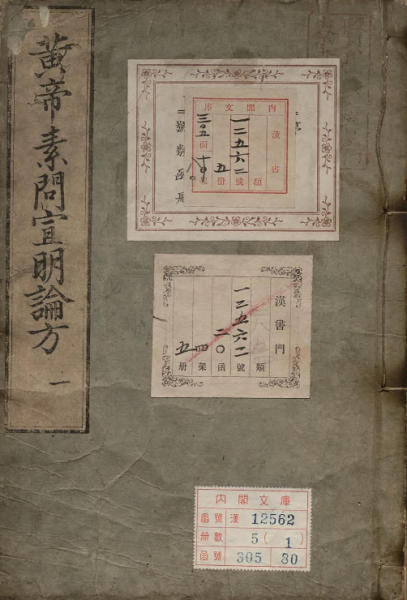 黄帝素問宣明論方
一
内閣文庫
漢書
一二五六二
類
號
五
冊
三〇五
函
漢書門
類
一二五六二
號
二〇
函
四
架
五
冊
内閣文庫
番號 漢 12562
冊數 5 (1)
函號 305 80